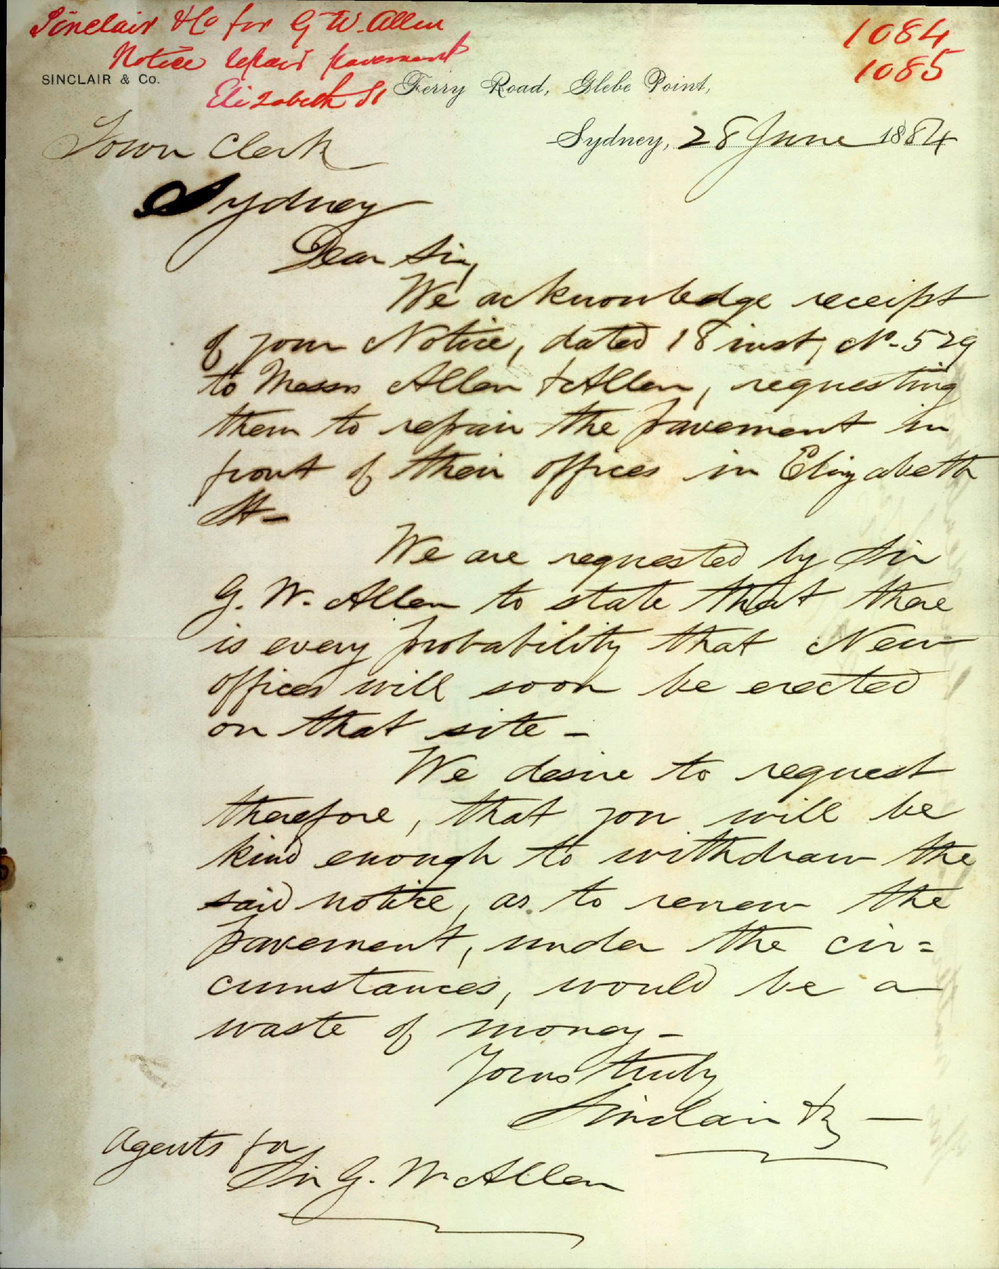 Sinclair & Co for G W. Allen
Notice repair pavement
Elizabeth St
1084
1085
SINCLAIR & Co.
Ferry Road, Glebe Point,
Sydney, 28 June 1884
Town Clerk
Sydney
Dear Sir,
We acknowledge receipt
of your Notice, dated 18 inst, No. 529
to Messrs Allen & Allen, requesting
them to repair the pavement in
front of their offices in Elizabeth
St-
We are requested by Sir
G. W. Allen to state that there
is every probability that New
offices will soon be erected
on that site -
We desire to request
therefore, that you will be
kind enough to withdraw the
said notice, as to renew the
pavement, under the cir=
cumstances, would be a
waste of money -
Yours truly
Sinclair & Co -
Agents for
Sir G. W. Allen